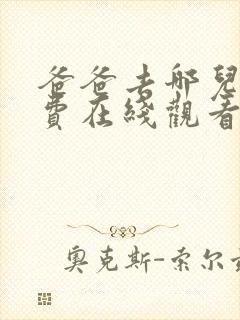 爸爸去哪兒
費在綫觀看
奧克斯-索尔